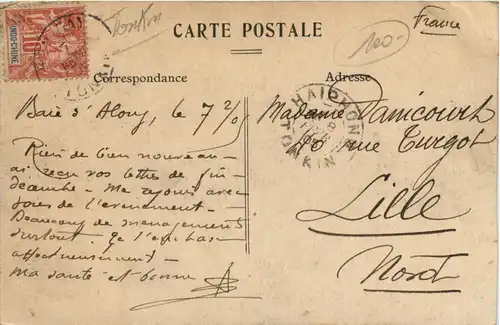 Tonkin
CARTE POSTALE
France
100-
INDO-CHINE
10
Correspondance
Adresse
HAIPHONG
TONKIN
Baie d'Along, le 7 2/0
Madame Danicourt
rue Turgot
Lille
Nord
Rien de bien nouveau -
ai reçu vos lettres de fin
décembre - Me réjouis avec
de l'évènement -
Beaucoup de ménagements
surtout. Je t'embrasse
affectueusement -
Ma santé est bonne